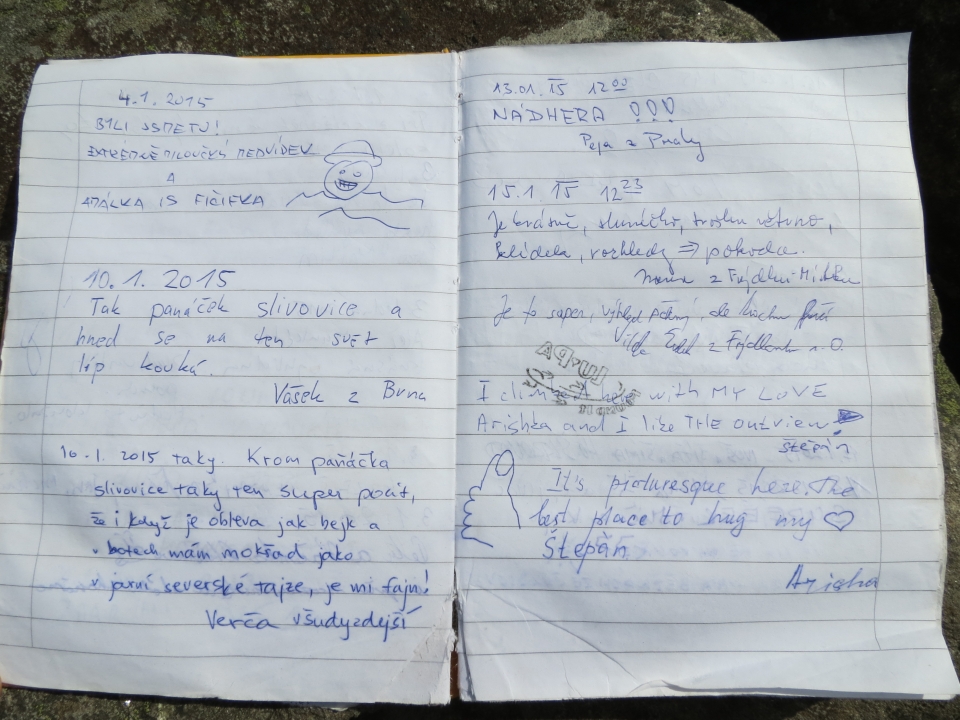 4.1. 2015
BYLI JSME TU!
EXTRÉMNĚ MILOUČKÝ MEDVÍDEK
A
IS FIČIFKA
10.1. 2015
Tak panáček slivovice a
hned se na ten svět
líp kouká.
Vášek z Brna
10.1. 2015 taky. Krom paňáčka
slivovice taky ten super pocit,
že i když je obleva jak bejk a
v botech mám mokřad jako
v jarní severské tajze, je mi fajn!
Verča všudyzdejší
13.01. 15 12 00
NÁDHERA !!!
Peja z Prahy
15.1. 15 12 23
Je krásně, sluníčko, trošku větrno,
klídek, rozhledy => pohoda.
z
Je to super, výhled pěkný, ale trochu
z Frýdlantu n. O.
I with MY LOVE
Arishka and I like THE outview!
Štěpán
It's picturesque here. The
best place to hug my ♡
Štěpán
Arisha